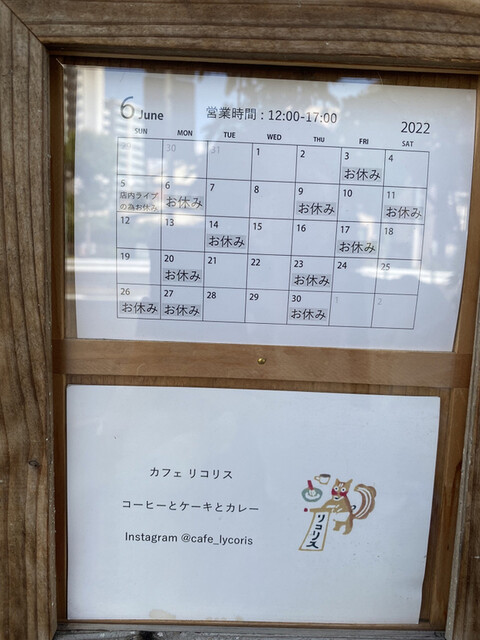 6 June 営業時間 : 12:00-17:00 2022
SUN MON TUE WED THU FRI SAT
29 30 31 1 2 3 4
お休み
5 6 7 8 9 10 11
店内ライブ お休み お休み お休み
の為お休み
12 13 14 15 16 17 18
お休み お休み
19 20 21 22 23 24 25
お休み お休み
26 27 28 29 30 1 2
お休み お休み お休み
カフェ リコリス
コーヒーとケーキとカレー
Instagram @cafe_lycoris
リコリス